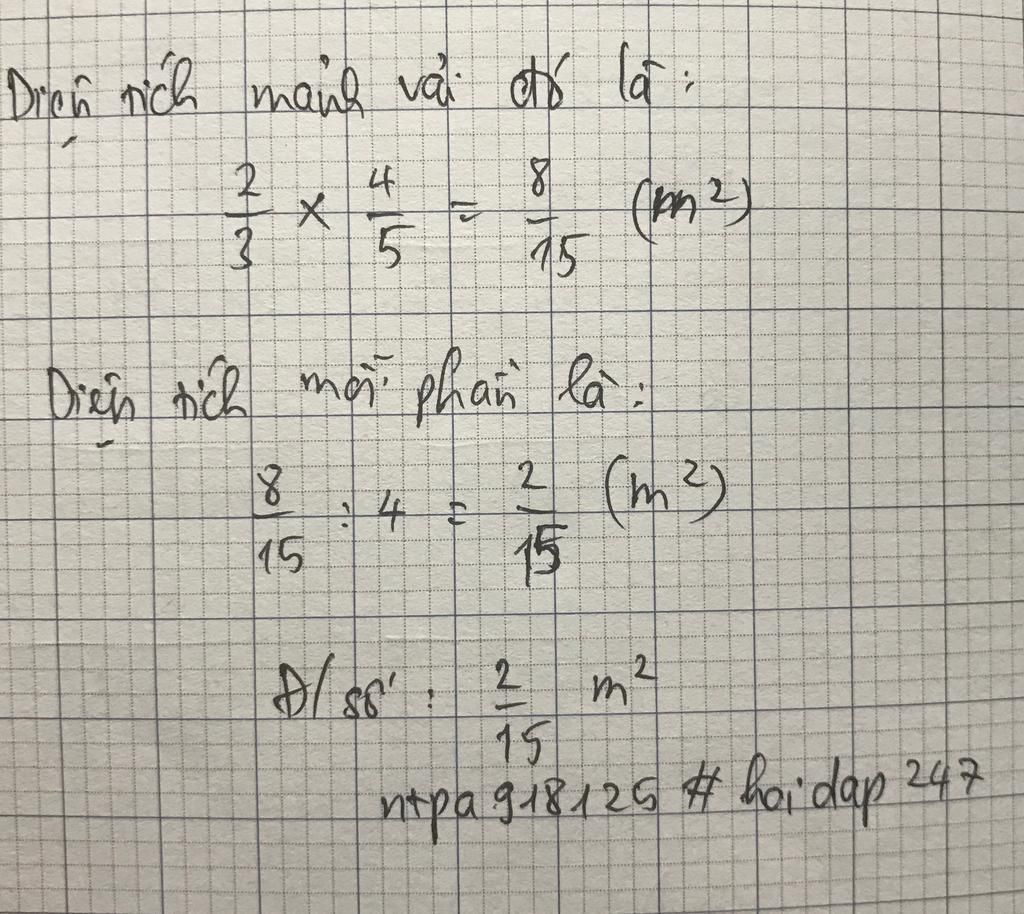 Diện tích mảnh vải đó là:
2/3 × 4/5 = 8/15 (m²)
Diện tích mỗi phần là:
8/15 : 4 = 2/15 (m²)
Đ/số: 2/15 m²
ntpa918125 # hoidap 247